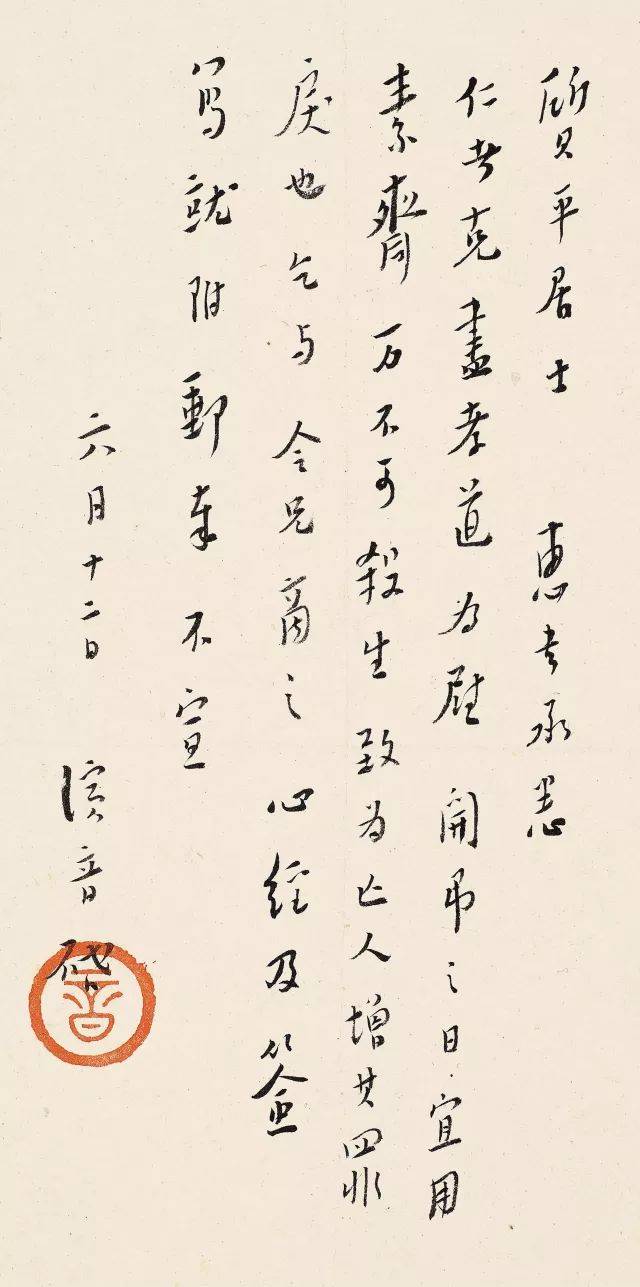 質平居士 惠书承悉
仁者克盡孝道为慰 開弔之日宜用
素齋万不可殺生致为亡人增其罪
戾也乞与令兄商之心經及簽
寫就附郵奉不宣
六月十二日 演音啟